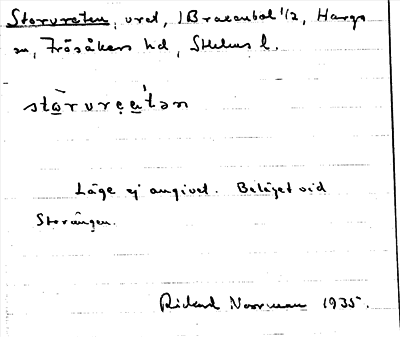 Storvreten, vret, 1 Braxenbol 1/2, Hargs
sn, Frösåkers hd, Sthlms l.
stòrvreⱥ'tən
Läge ej angivet. Beläget vid
Storängen.
Rickard Norrman 1935.